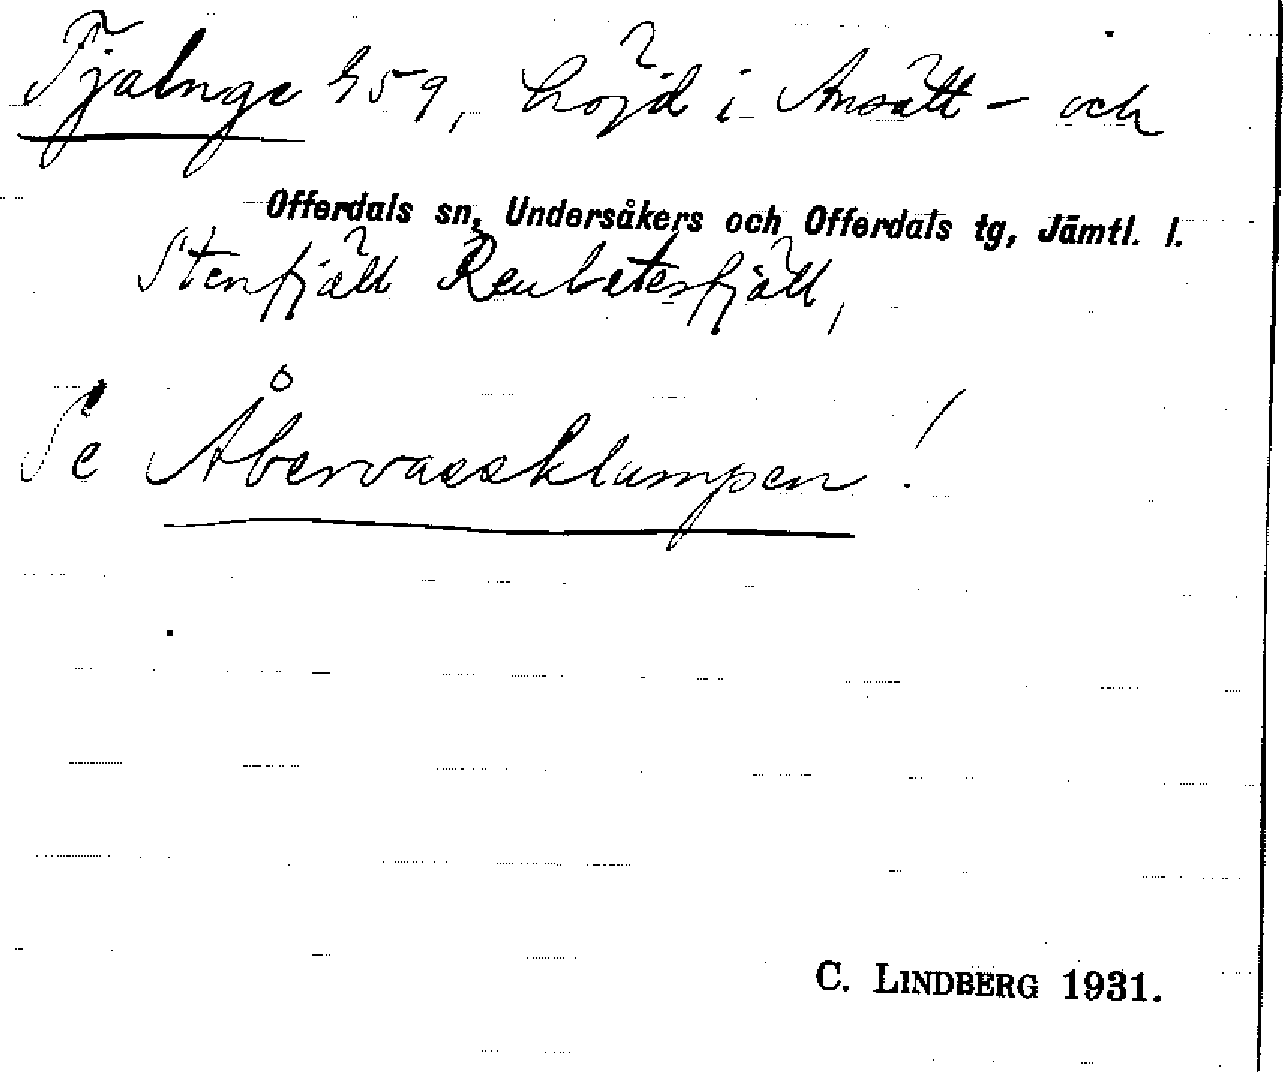 Fjalnge 959, höjd i Ansätt - och
Offerdals sn, Undersåkers och Offerdals tg, Jämtl. l.
Stenfjäll Renbetesfjäll,
Se Åbervassklumpen!
C. LINDBERG 1931.